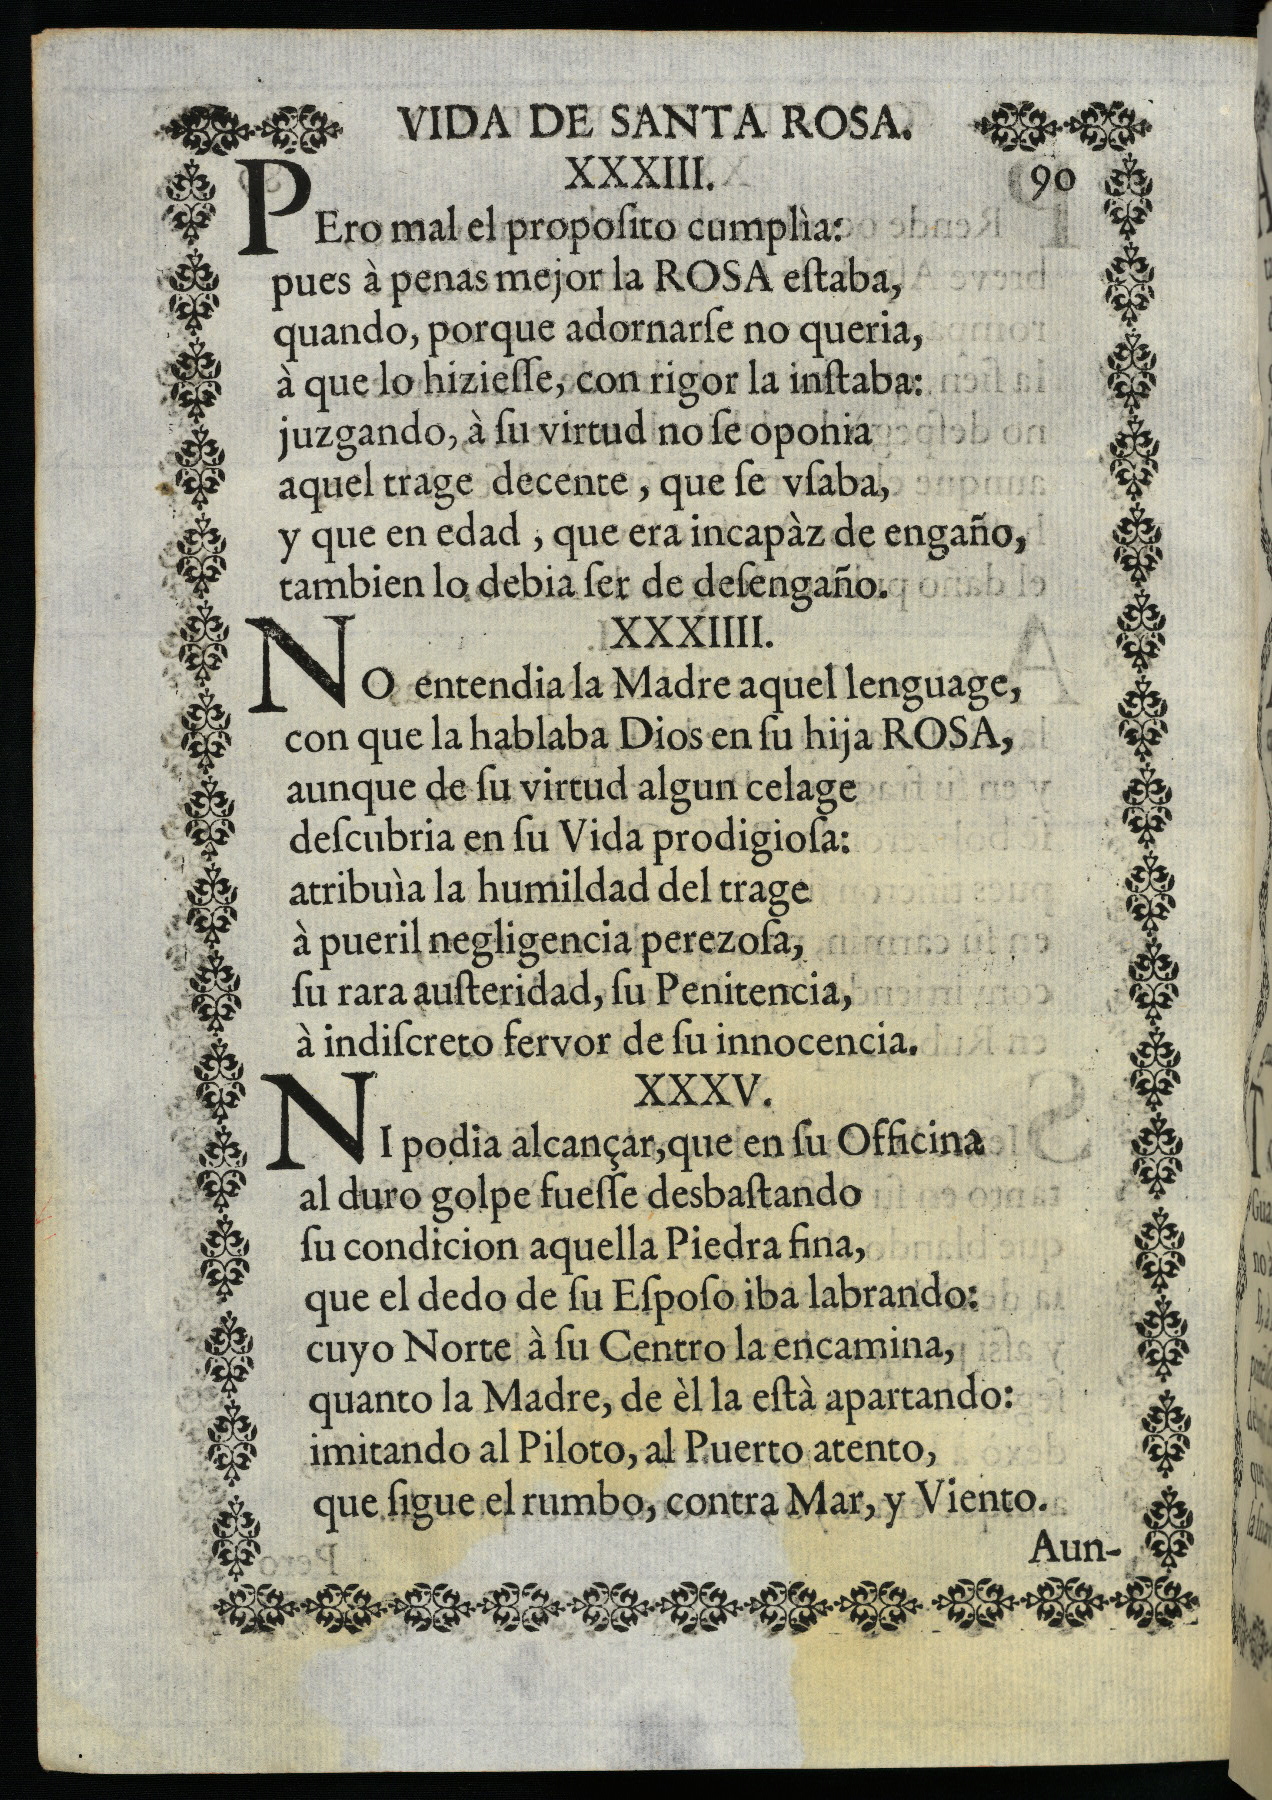 VIDA DE SANTA ROSA.
XXXIII.
90
PEro mal el propoſito cumplìa:
pues à penas mejor la ROSA eſtaba,
quando, porque adornarſe no queria,
à que lo hizieſſe, con rigor la inſtaba:
juzgando, à ſu virtud no ſe oponia
aquel trage decente, que ſe vſaba,
y que en edad, que era incapàz de engaño,
tambien lo debia ſer de deſengaño.
XXXIIII.
NO entendia la Madre aquel lenguage,
con que la hablaba Dios en ſu hija ROSA,
aunque de ſu virtud algun celage
deſcubria en ſu Vida prodigioſa:
atribuìa la humildad del trage
à pueril negligencia perezoſa,
ſu rara auſteridad, ſu Penitencia,
à indiſcreto fervor de ſu innocencia.
XXXV.
NI podia alcançar, que en ſu Officina
al duro golpe fueſſe desbaſtando
ſu condicion aquella Piedra fina,
que el dedo de ſu Eſpoſo iba labrando:
cuyo Norte à ſu Centro la encamina,
quanto la Madre, de èl la eſtà apartando:
imitando al Piloto, al Puerto atento,
que ſigue el rumbo, contra Mar, y Viento.
Aun-